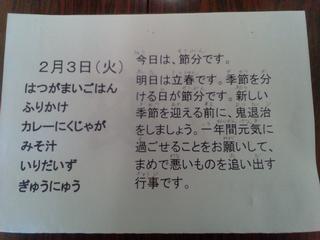 2月3日(火)
はつがまいごはん
ふりかけ
カレーにくじゃが
みそ汁
いりだいず
ぎゅうにゅう
今日は、節分です。
明日は立春です。季節を分
ける日が節分です。新しい
季節を迎える前に、鬼退治
をしましょう。一年間元気に
過ごせることをお願いして、
まめで悪いものを追い出す
行事です。